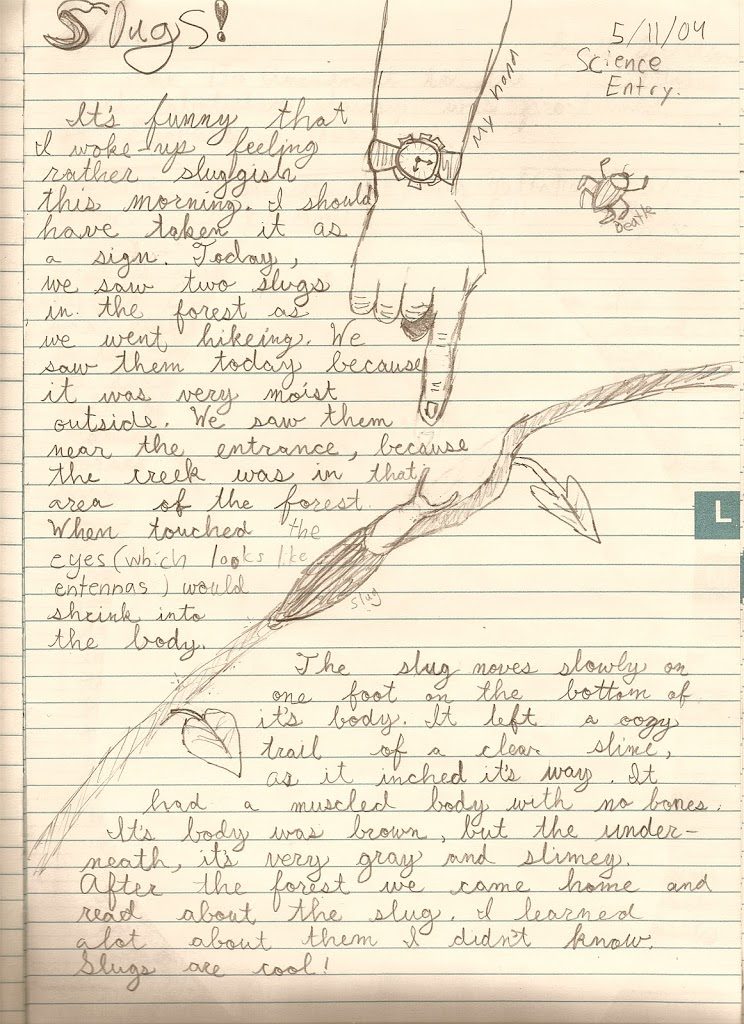 Slugs!
5/11/04
Science
Entry.
My hand
Beatle
It's funny that
I woke-up feeling
rather sluggish
this morning. I should
have taken it as
a sign. Today,
we saw two slugs
in the forest as
we went hikeing. We
saw them today because
it was very moist
outside. We saw them
near the entrance, because
the creek was in that
area of the forest.
When touched the
eyes (which looks like
entennas) would
shrink into
the body.
slug
L
The slug moves slowly on
one foot on the bottom of
it's body. It left a oozy
trail of a clear slime,
as it inched it's way. It
had a muscled body with no bones.
It's body was brown, but the under-
neath, it's very gray and slimey.
After the forest we came home and
read about the slug. I learned
alot about them I didn't know.
Slugs are cool!